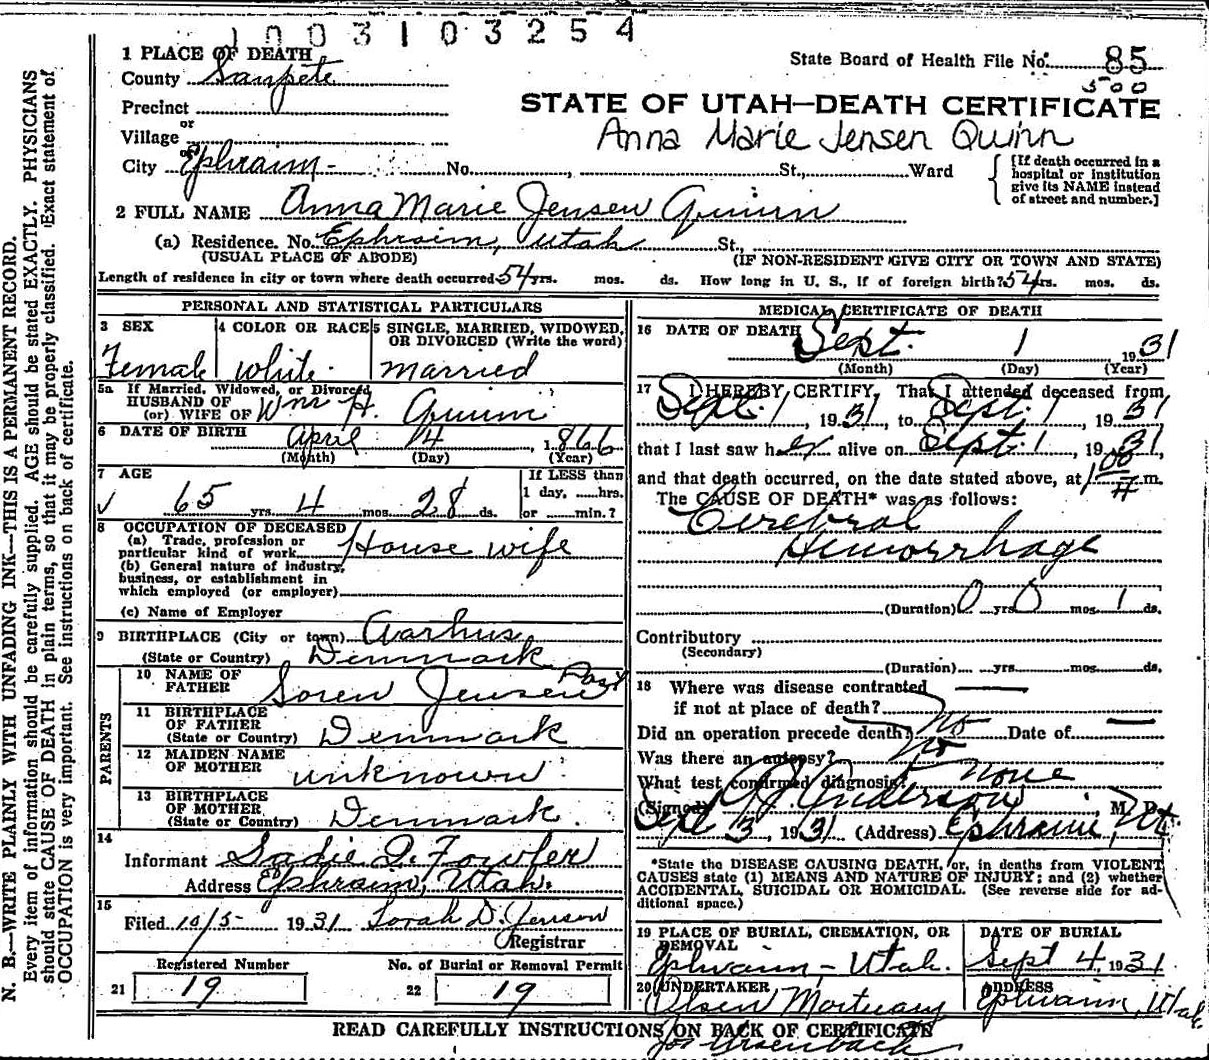 1003103254
1 PLACE OF DEATH
State Board of Health File No. 85
County Sanpete
500
Precinct
STATE OF UTAH—DEATH CERTIFICATE
or
Village
Anna Marie Jensen Quinn
or
City Ephraim - No. , St., Ward
[If death occurred in a
hospital or institution
give its NAME instead
of street and number.]
2 FULL NAME Anna Marie Jensen Quinn
(a) Residence. No. Ephraim, Utah St.,
(USUAL PLACE OF ABODE) (IF NON-RESIDENT GIVE CITY OR TOWN AND STATE)
Length of residence in city or town where death occurred 54 yrs. mos. ds. How long in U. S., if of foreign birth? 54 yrs. mos. ds.
PERSONAL AND STATISTICAL PARTICULARS
3 SEX
Female
4 COLOR OR RACE
white
5 SINGLE, MARRIED, WIDOWED,
OR DIVORCED (Write the word)
married
5a If Married, Widowed, or Divorced
HUSBAND OF
(or) WIFE OF Wm H. Quinn
6 DATE OF BIRTH April 4 , 1866
(Month) (Day) (Year)
7 AGE
65 yrs. 4 mos. 28 ds.
If LESS than
1 day, ......hrs.
or ......min.?
8 OCCUPATION OF DECEASED
(a) Trade, profession or
particular kind of work House wife
(b) General nature of industry,
business, or establishment in
which employed (or employer)
(c) Name of Employer
9 BIRTHPLACE (City or town) Aarhus
(State or Country) Denmark
PARENTS
10 NAME OF
FATHER Soren Jensen
11 BIRTHPLACE
OF FATHER
(State or Country) Denmark
12 MAIDEN NAME
OF MOTHER unknown
13 BIRTHPLACE
OF MOTHER
(State or Country) Denmark.
14
Informant Sadie Q. Fowler
Address Ephraim, Utah.
15
Filed 10/5 1931 Sorah D. Jensen
Registrar
Registered Number
21 19
No. of Burial or Removal Permit
22 19
MEDICAL CERTIFICATE OF DEATH
16 DATE OF DEATH Sept. 1 , 1931
(Month) (Day) (Year)
17 I HEREBY CERTIFY, That I attended deceased from
Sept. 1 , 1931, to Sept. 1 , 1931
that I last saw her alive on Sept. 1 , 1931,
and that death occurred, on the date stated above, at 1 00 m.
The CAUSE OF DEATH* was as follows:
Cerebral
Hemorrhage
(Duration) 0 yrs 0 mos 1 ds.
Contributory
(Secondary)
(Duration) yrs mos ds.
18 Where was disease contracted
if not at place of death?
Did an operation precede death? no Date of
Was there an autopsy? no
What test confirmed diagnosis? none
(Signed) Anderson M. D.
Sept 3, 1931 (Address) Ephraim, Ut.
*State the DISEASE CAUSING DEATH, or, in deaths from VIOLENT
CAUSES state (1) MEANS AND NATURE OF INJURY; and (2) whether
ACCIDENTAL, SUICIDAL OR HOMICIDAL. (See reverse side for ad-
ditional space.)
19 PLACE OF BURIAL, CREMATION, OR
REMOVAL
Ephraim - Utah.
DATE OF BURIAL
Sept 4, 1931
20 UNDERTAKER
Olsen Mortuary
ADDRESS
Ephraim, Utah.
READ CAREFULLY INSTRUCTIONS ON BACK OF CERTIFICATE
N. B.—WRITE PLAINLY WITH UNFADING INK—THIS IS A PERMANENT RECORD.
Every item of information should be carefully supplied. AGE should be stated EXACTLY. PHYSICIANS
should state CAUSE OF DEATH in plain terms, so that it may be properly classified. Exact statement of
OCCUPATION is very important. See instructions on back of certificate.